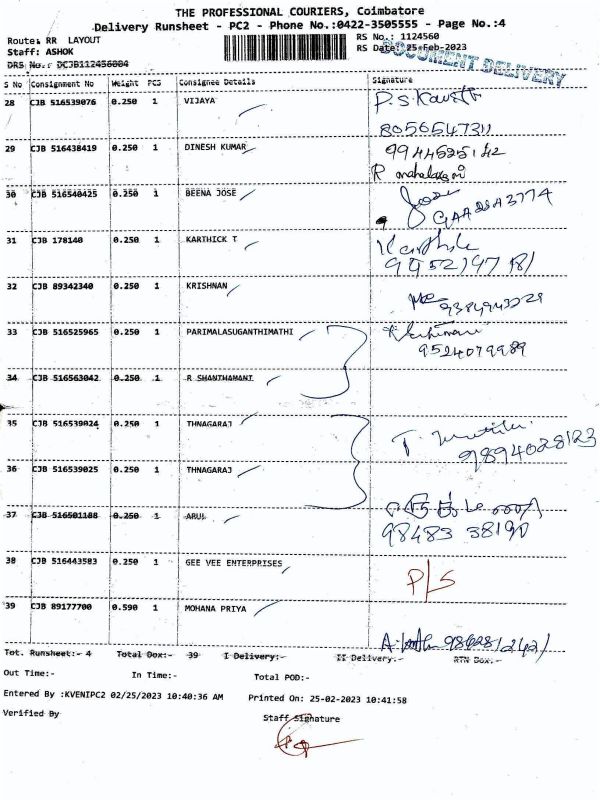 THE PROFESSIONAL COURIERS, Coimbatore
Delivery Runsheet - PC2 - Phone No.:0422-3505555 - Page No.:4
Route: RR LAYOUT
RS No.: 1124560
Staff: ASHOK
RS Date: 25-Feb-2023
DOCUMENT DELIVERY
DRS No.: DCJB112456004
S No Consignment No Weight PCS Consignee Details Signature
28 CJB 516539076 0.250 1 VIJAYA
8056547311
29 CJB 516438419 0.250 1 DINESH KUMAR
9944525142
R mahalaxmi
30 CJB 516540425 0.250 1 BEENA JOSE Jose
31 CJB 178140 0.250 1 KARTHICK T Karthik
32 CJB 89342340 0.250 1 KRISHNAN
33 CJB 516525965 0.250 1 PARIMALASUGANTHIMATHI
9524079989
34 CJB 516563042 0.250 1 R SHANTHAMANI
35 CJB 516539024 0.250 1 THNAGARAJ
9894028123
36 CJB 516539025 0.250 1 THNAGARAJ
37 CJB 516501188 0.250 1 ARUL
98483 38190
38 CJB 516443583 0.250 1 GEE VEE ENTERPRISES P/S
39 CJB 89177700 0.590 1 MOHANA PRIYA
Tot. Runsheet:- 4 Total Dox:- 39 I Delivery:- II Delivery.- RTN Dox:-
Out Time:- In Time:- Total POD:-
Entered By :KVENIPC2 02/25/2023 10:40:36 AM Printed On: 25-02-2023 10:41:58
Verified By Staff Signature